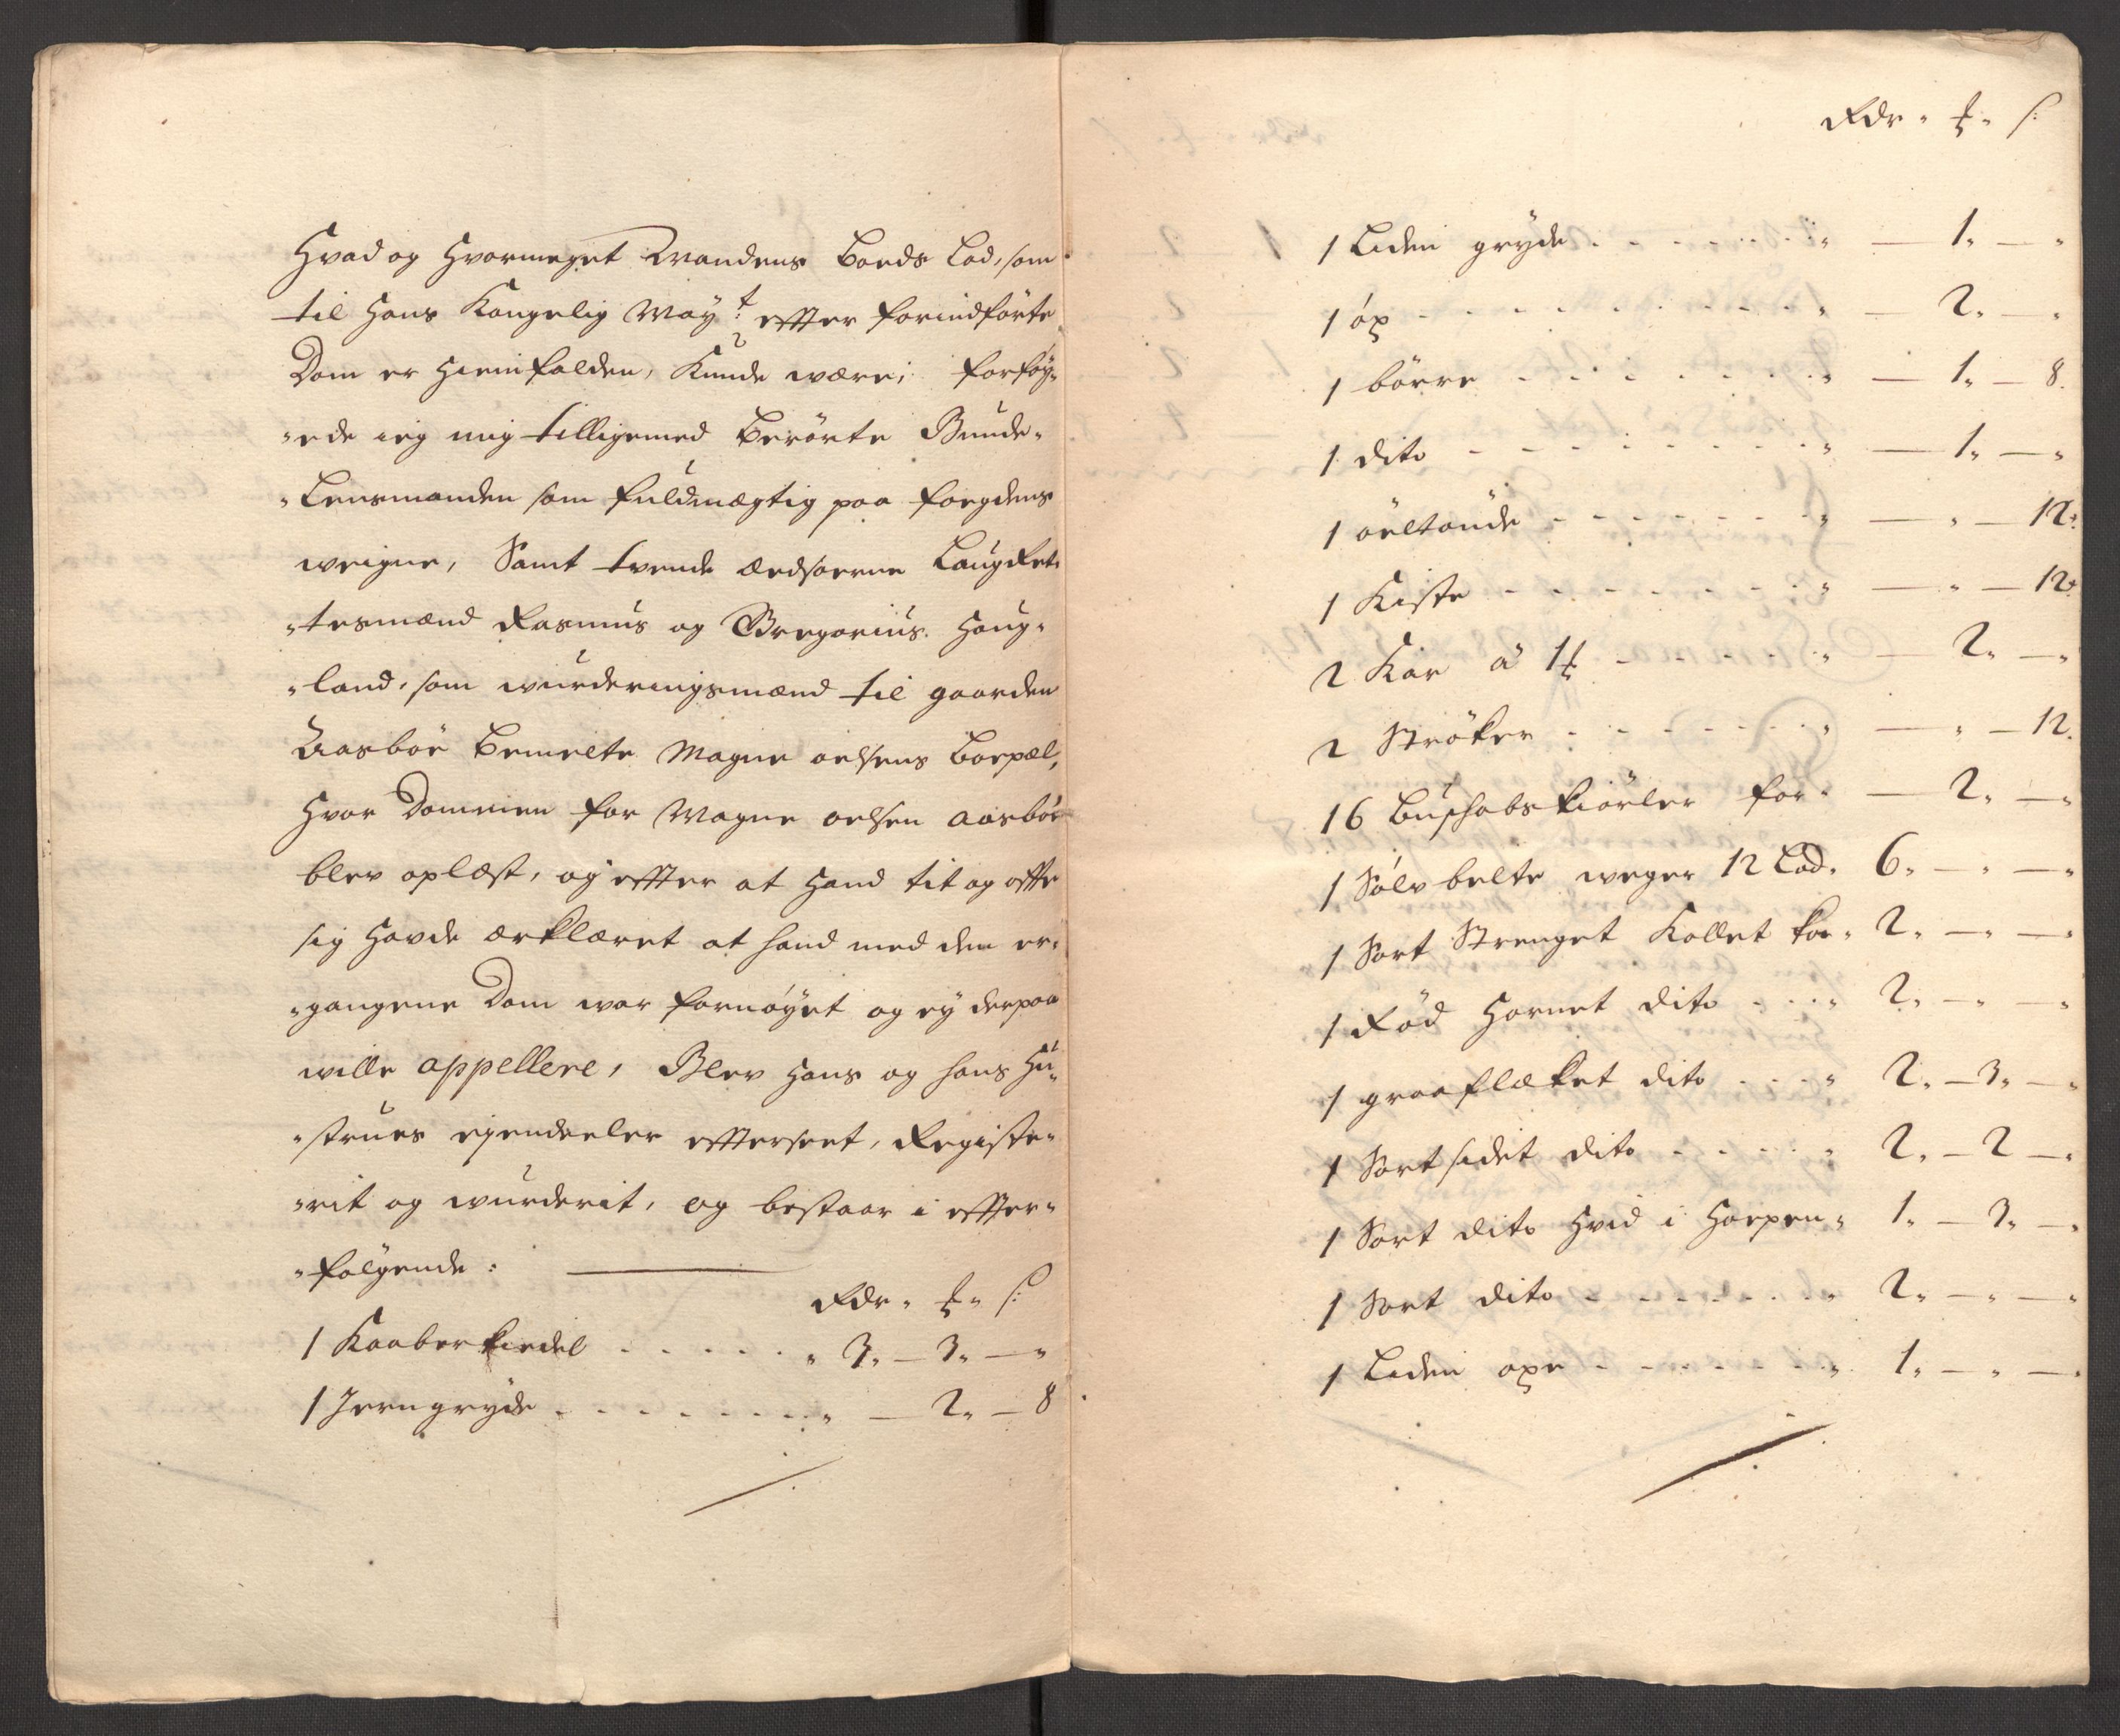 Hvad og Hvormeget Mandens Boeds Lod, som
til Hans Kongelig May:t effter forindförte
Dom er Hiemfalden, Kunde være; forföy„
„ede ieg mig tilligemed Berörte Bunde„
„Lensmanden som fuldmægtig paa fogdens
weigne, Samt tvende Ædsoerne Laugret„
„tesmænd Rasmus og Gregorius Houg„
„land, som wurderingsmænd til gaarden
Aasböe bemelte Magne oelsens boepæl,
Hvor Dommen for Magne oelsen Aasböe
blev oplæst, og effter at Hand tit og offte
sig Havde ærklæret at hand med den er„
„gangene Dom war fornöyet og ey derpaa
wille appellere, Blev Hans og hans Hu„
„strues ejendeeler effterseet, Registe„
„rit og wurderit, og bestaar i effter„
„fölgende:
Rdr „ ℔ „ s:
1 Kaaberkiedel . . . . . „ 3„ — 3„ — „
1 Jerngryde . . . . . . . „ — 2„ — 8
Rdr „ ℔ „ s:
1 Liden gryde . . . . . . „ — 1„ — „
1 öx - - - - - - - - - „ — 2„ — „
1 börre - - - - - - - „ — 1„ — 8.
1 dito - - - - - - - „ — 1„ — „
1 öeltönde - - - - - - „ — „ — 12.
1 Kiste - - - - - - - „ — „ — 12.
2 Kar á 1 ℔ - - - - - „ — 2„ — „
2 Ströker - - - - - - „ — „ — 12.
16 Buschabskiörler for „ — 2„ — „
1 Sölv belte weger 12 Lod „ 6„ — „ — „
1 Sort Strenget Kollet koe „ 2„ — „ — „
1 Röd Hornet dito . . . „ 2„ — „ — „
1 graaflæket dito . . . „ 2„ — 3„ — „
1 Sortsidet dito . . . . „ 2„ — 2 — „
1 Sort dito Hvid i Hoepen „ 1„ — 3„ — „
1 Sort dito - - - - - - „ 2„ — „ — „
1 Liden oxe - - - - - - „ 1„ — „ — „